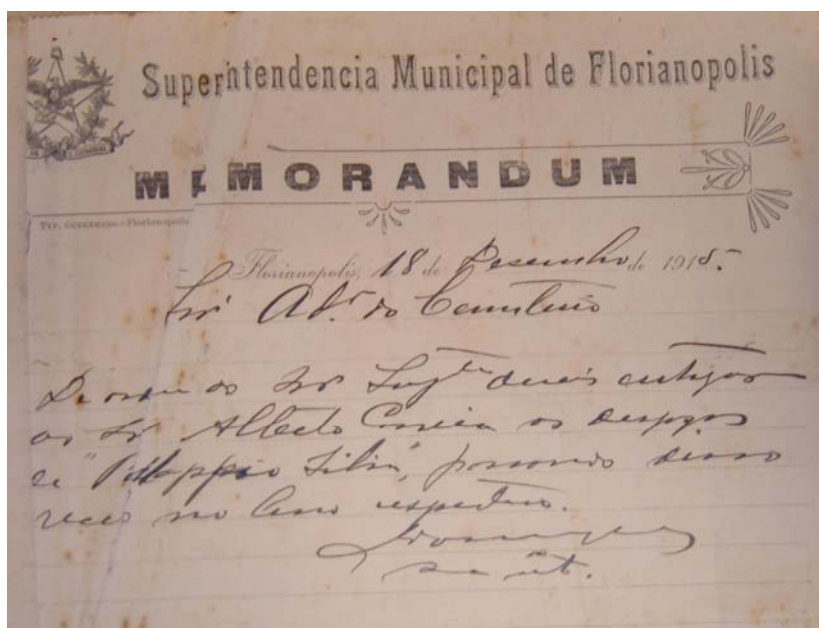 Superintendencia Municipal de Florianopolis
MEMORANDUM
Typ. GUTENBERG - Florianopolis
Florianopolis, 18 de Desembro de 1915.
Snr Adr. do Cemiterio
De ordem do Snr Supte deveis entregar
ao Sr Alberto Correia os despojos
de passando disso
no livro respectivo.